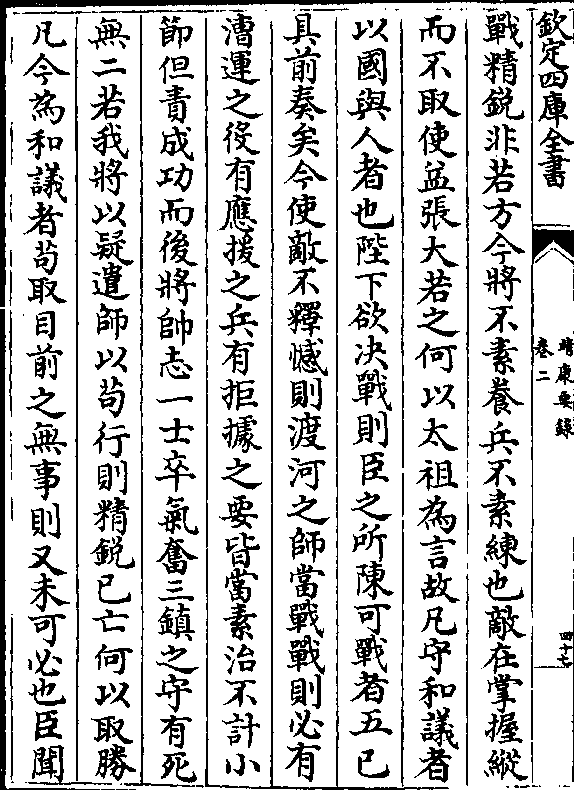 欽定四庫全書
靖康要錄
卷二
四十七
戰精銳非若方今將不素養兵不素練也敵在掌握縱
而不取使益張大若之何以太祖為言故凡守和議者
以國與人者也陛下欲決戰則臣之所陳可戰者五已
具前奏矣今使敵不釋憾則渡河之師當戰戰則必有
漕運之役有應援之兵有拒據之要皆當素治不計小
節但責成功而後將帥志一士卒氣奮三鎮之守有死
無二若我將以疑遣師以苟行則精銳已亡何以取勝
凡今為和議者苟取目前之無事則又未可必也臣聞